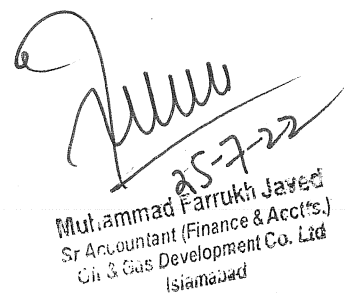 25-7-22
Muhammad Farrukh Javed
Sr Accountant (Finance & Acctts.)
Oil & Gas Development Co. Ltd
Islamabad